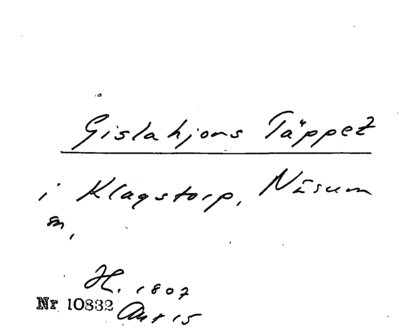 Gislahjons Täppet
i Klagstorp, Näsum
sn,
H. 1807
Nr 10832
Art 15